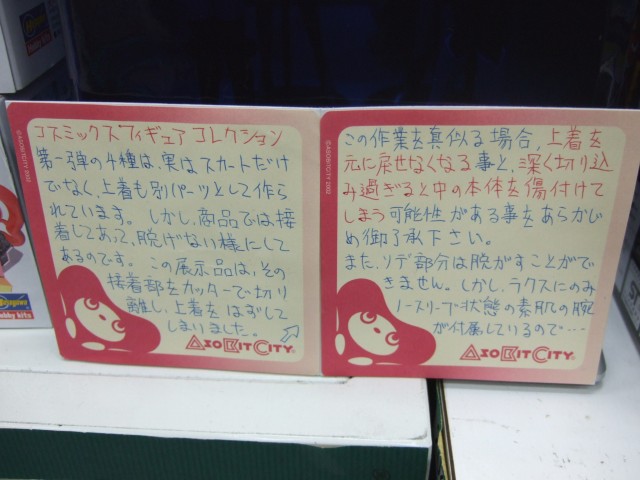 コスミックスフィギュア コレクション
第一弾の4種は、実はスカートだけ
でなく、上着も別パーツとして作ら
れています。しかし、商品では接
着してあって、脱げない様にして
あるのです。この展示品は、その
接着部をカッターで切り
離し、上着をはずして
しまいました。
ASO BIT CITY
©ASOBITCITY 2002
この作業を真似る場合、上着を
元に戻せなくなる事と、深く切り込
み過ぎると中の本体を傷付けて
しまう可能性がある事をあらかじ
め御了承下さい。
また、ソデ部分は脱がすことがで
きません。しかし、ラクスにのみ
ノースリーブ状態の素肌の腕
が付属しているので…
ASO BIT CITY
©ASOBITCITY 2002
Hasegawa
hobby kits